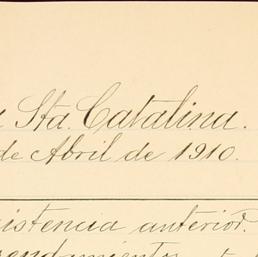 Sta. Catalina.
de Abril de 1910.
istencia anterior.
endamiento